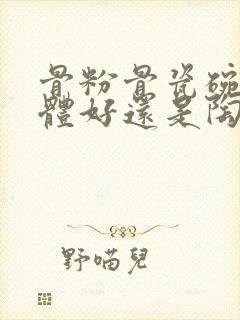 骨粉骨瓷碗
體好還是陶
野喵兒